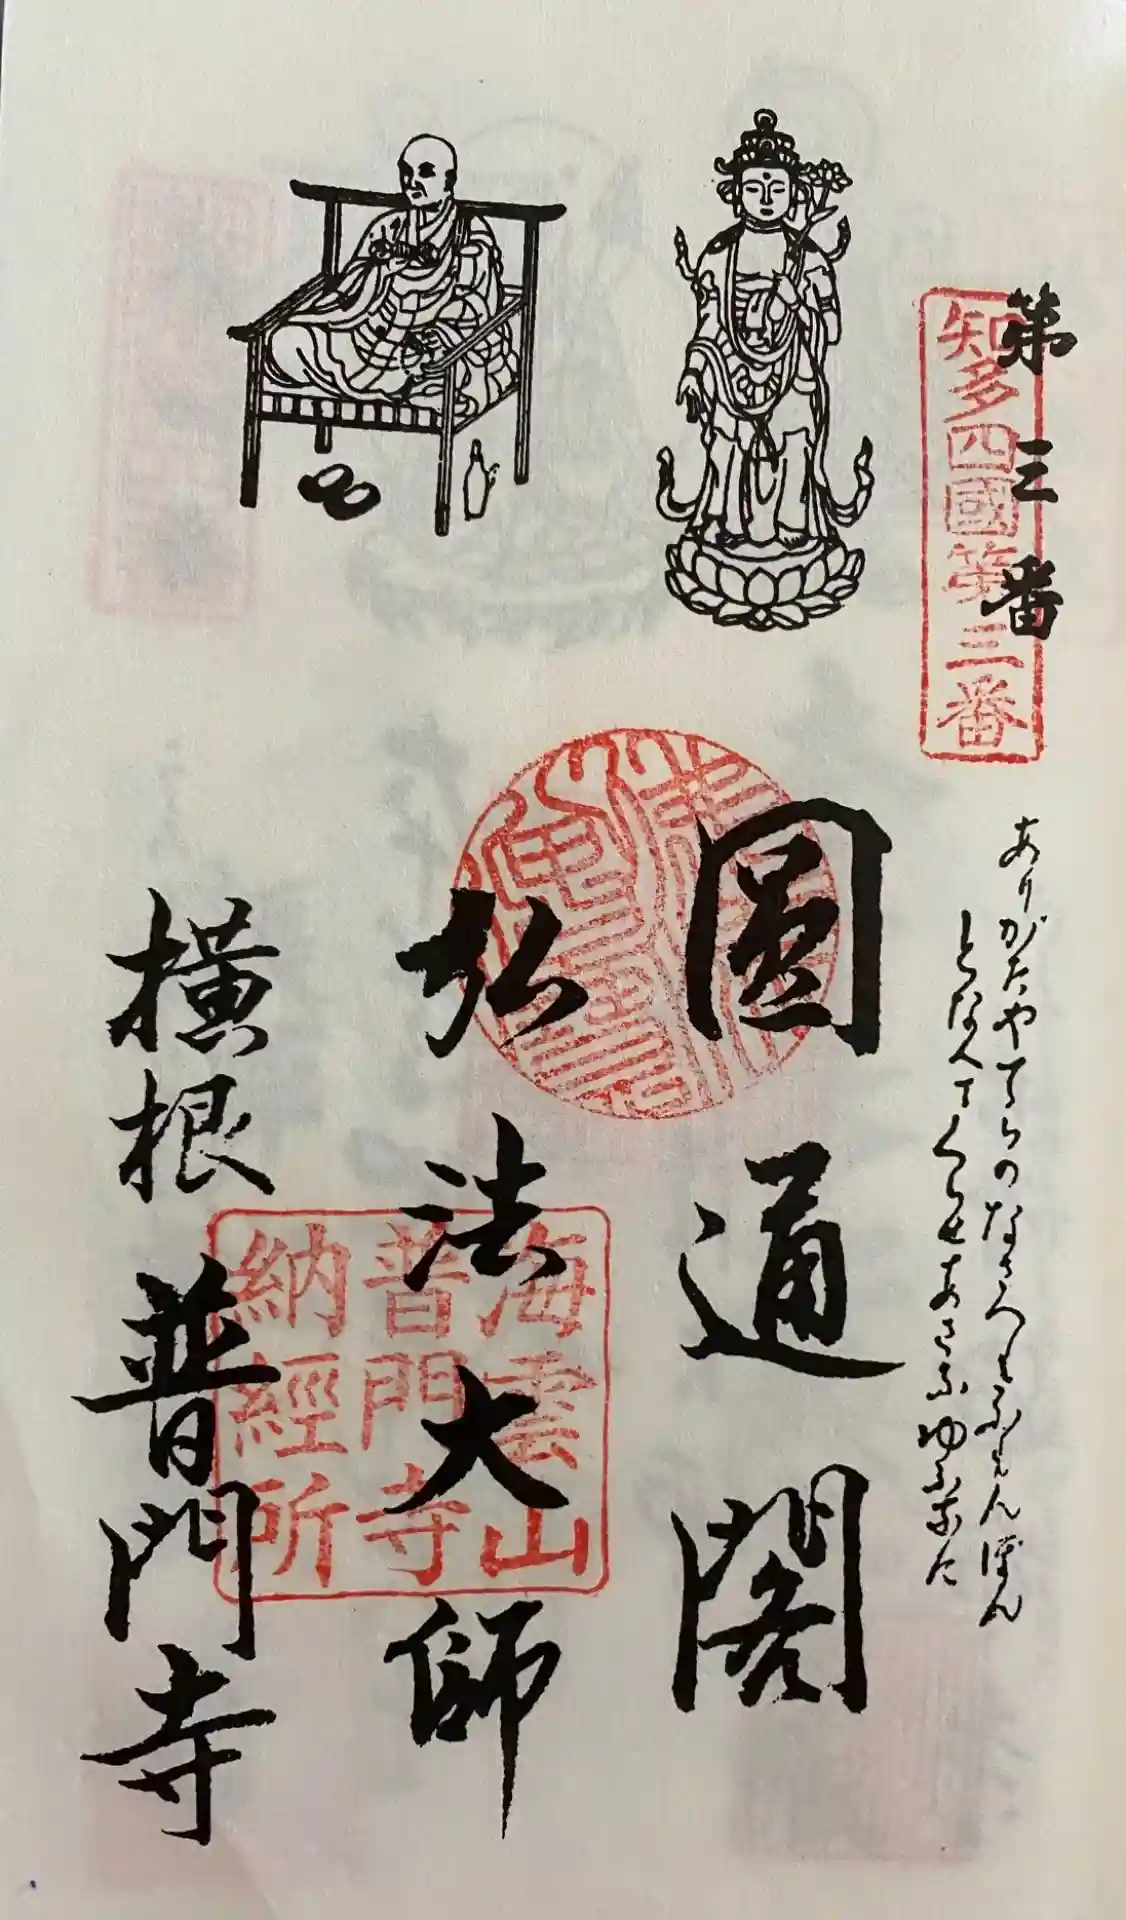 第三番
知多四國第三番
ありがたやてらのなさへもふもんぼん
となへてくらせあさなゆふなに
圓通閣
弘法大師
海雲山
普門寺
納經所
横根 普門寺